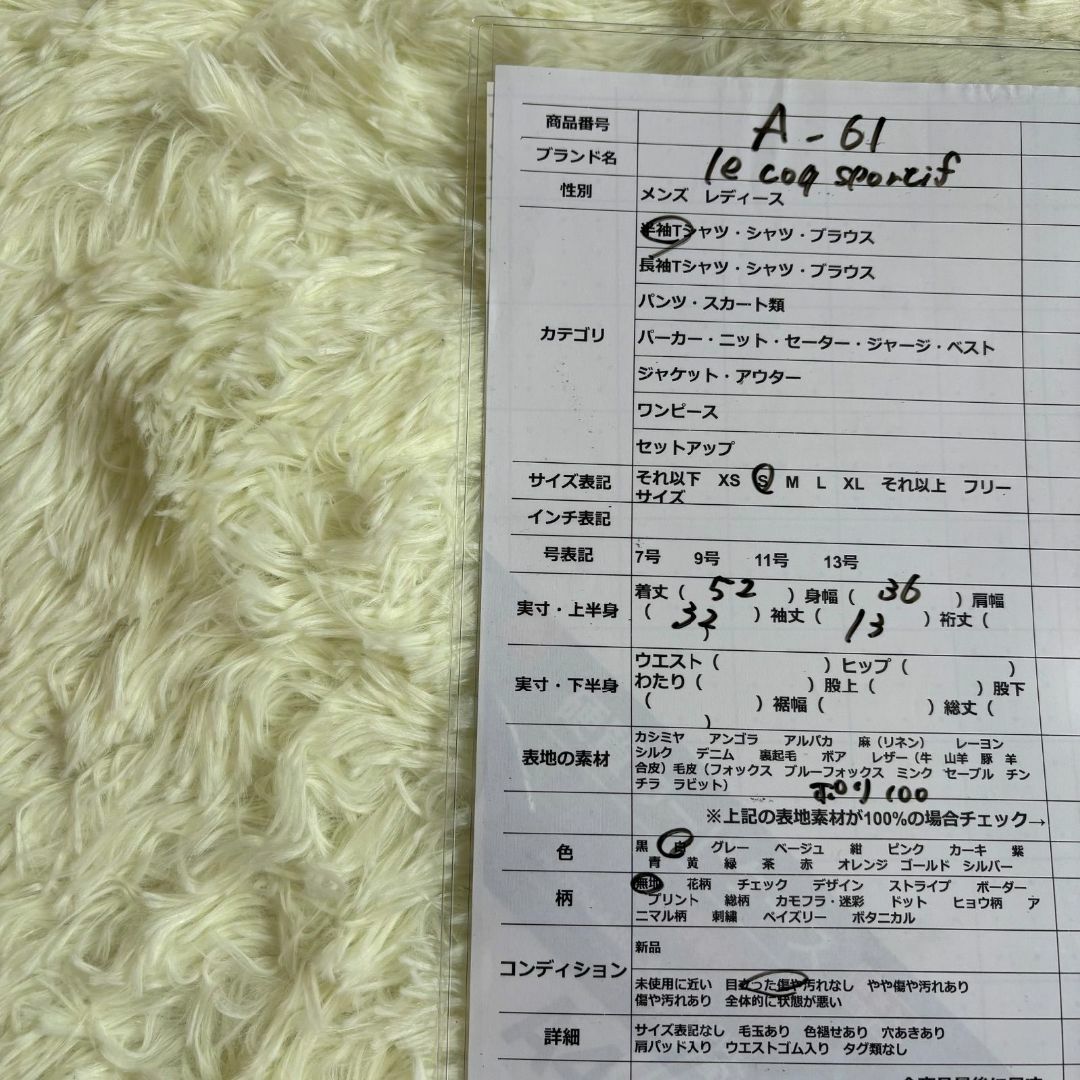 商品番号 A - 61
ブランド名 le coq sportif
性別 メンズ レディース
カテゴリ
半袖Tシャツ・シャツ・ブラウス
長袖Tシャツ・シャツ・ブラウス
パンツ・スカート類
パーカー・ニット・セーター・ジャージ・ベスト
ジャケット・アウター
ワンピース
セットアップ
サイズ表記 それ以下 XS S M L XL それ以上 フリー
サイズ
インチ表記
号表記 7号 9号 11号 13号
実寸・上半身 着丈( 52 )身幅( 36 )肩幅
( 32 )袖丈( 13 )裄丈(
)
実寸・下半身 ウエスト( )ヒップ( )
わたり( )股上( )股下
( )裾幅( )総丈(
)
表地の素材 カシミヤ アンゴラ アルパカ 麻(リネン) レーヨン
シルク デニム 裏起毛 ボア レザー(牛 山羊 豚 羊
合皮)毛皮(フォックス ブルーフォックス ミンク セーブル チン
チラ ラビット) ポリ100
※上記の表地素材が100%の場合チェック→
色 黒 白 グレー ベージュ 紺 ピンク カーキ 紫
青 黄 緑 茶 赤 オレンジ ゴールド シルバー
柄 無地 花柄 チェック デザイン ストライプ ボーダー
プリント 総柄 カモフラ・迷彩 ドット ヒョウ柄 ア
ニマル柄 刺繍 ペイズリー ボタニカル
コンディション 新品
未使用に近い 目立った傷や汚れなし やや傷や汚れあり
傷や汚れあり 全体的に状態が悪い
詳細 サイズ表記なし 毛玉あり 色褪せあり 穴あきあり
肩パッド入り ウエストゴム入り タグ類なし